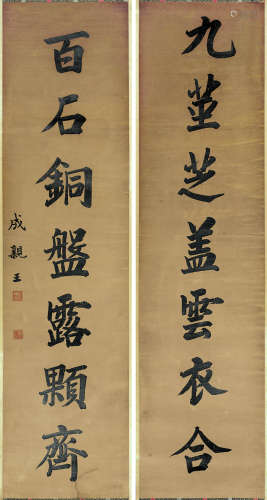 九莖芝蓋雲衣合
百石銅盤露顆齊
成親王